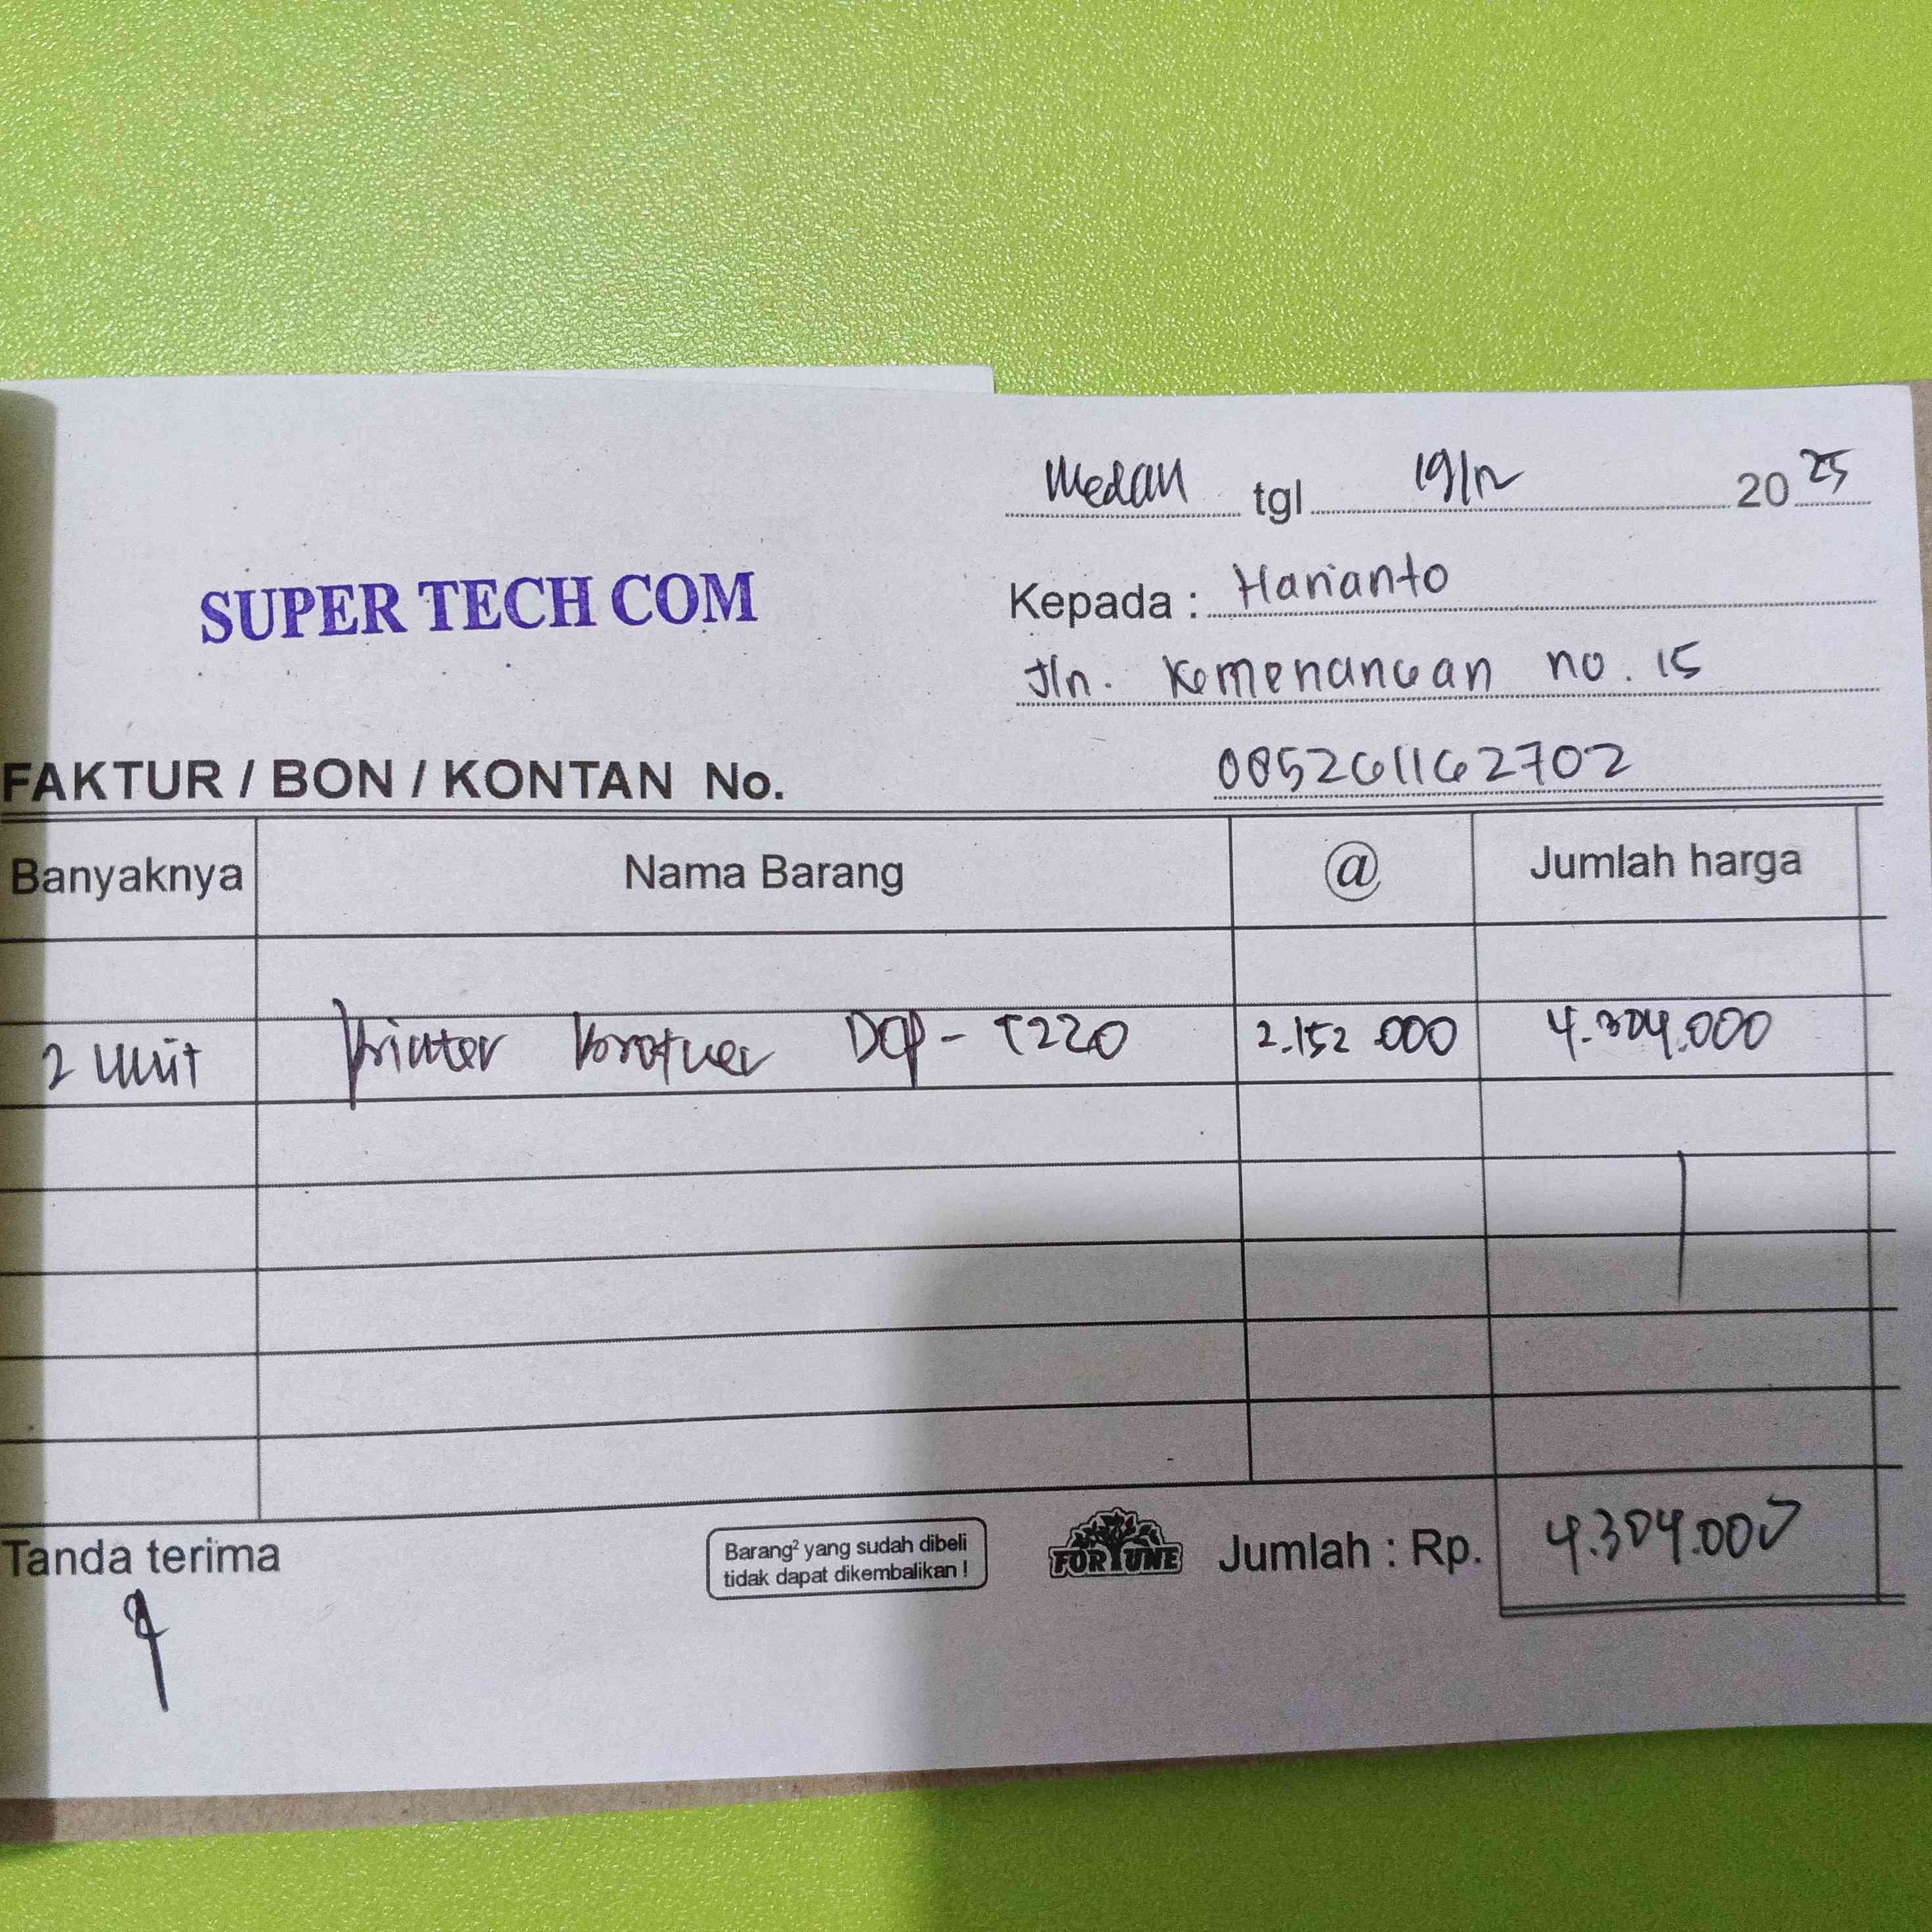 Medan tgl 19/12 2025
SUPER TECH COM
Kepada : Harianto
Jln. Kemenangan no. 15
FAKTUR / BON / KONTAN No. 085261162702
Banyaknya Nama Barang @ Jumlah harga
2 Unit Printer Brother DCP-T220 2.152.000 4.304.000
Tanda terima
Barang² yang sudah dibeli
tidak dapat dikembalikan !
FORTUNE
Jumlah : Rp. 4.304.000